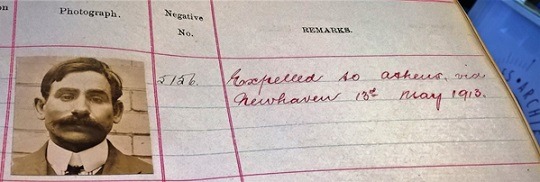 on
Photograph.
Negative
No.
REMARKS.
5156.
Expelled to Athens, via
Newhaven 13th May 1913.
ARCHIV